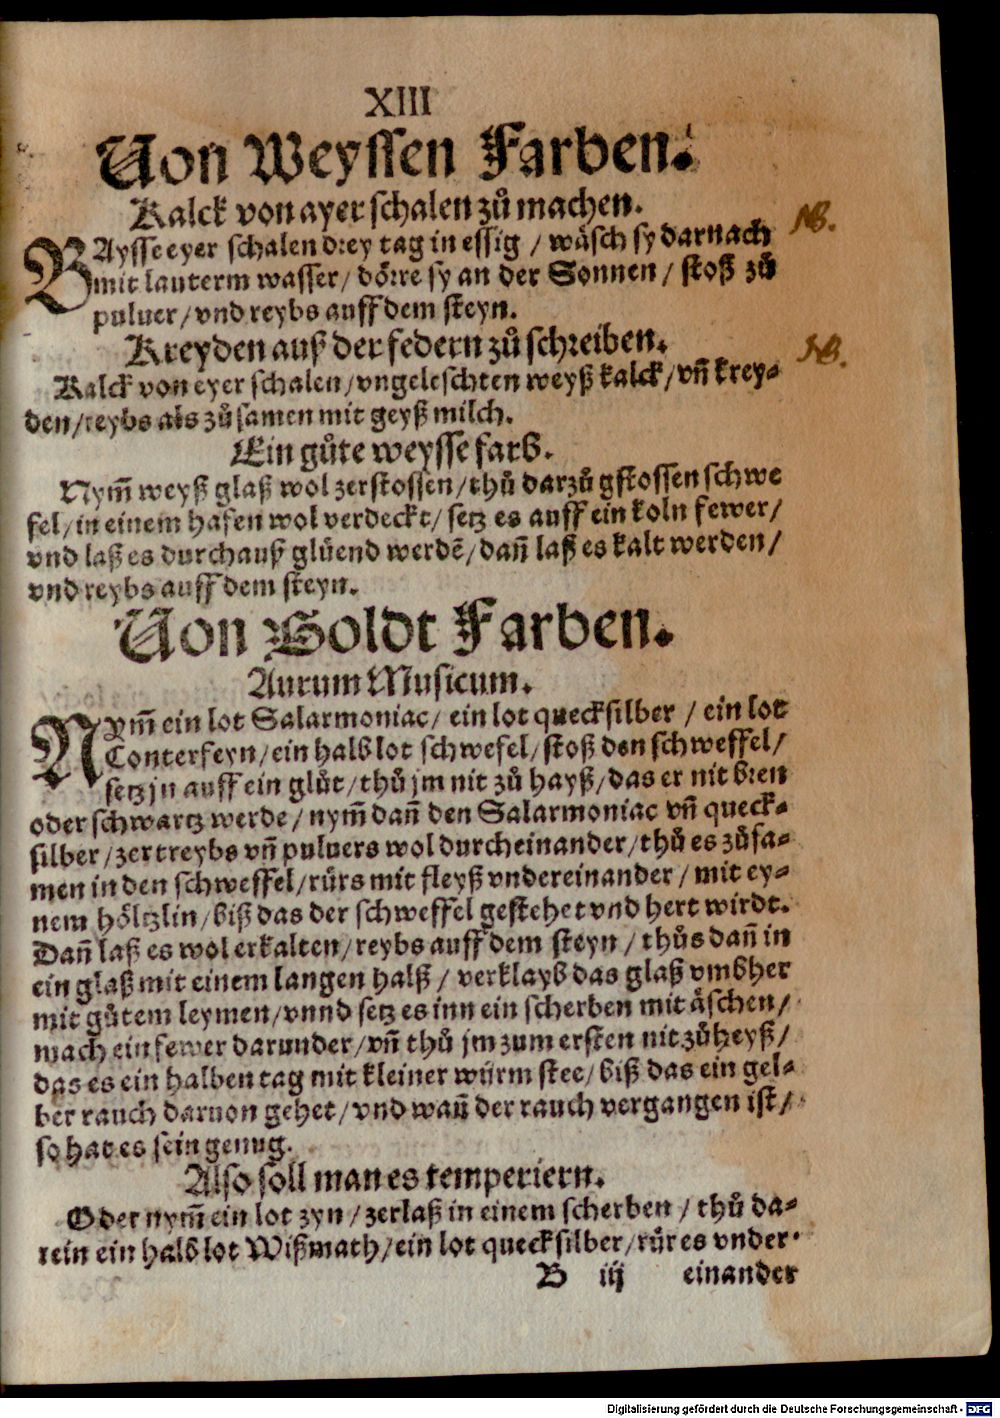 XIII
Von Weyssen Farben.
Kalck von ayer schalen zů machen.
NB.
BAysse eyer schalen drey tag in essig / wäsch sy darnach
mit lauterm wasser / dörre sy an der Sonnen / stoß zů
puluer / vnd reybs auff dem steyn.
Kreyden auß der federn zů schreiben.
NB.
Kalck von eyer schalen / vngeleschten weyß kalck / vñ krey-
den / reybs als zůsamen mit geyß milch.
Ein gůte weysse farb.
Nym̄ weyß glaß wol zerstossen / thů darzů gstossen schwe
fel / in einem hafen wol verdeckt / setz es auff ein koln fewer /
vnd laß es durchauß glüend werdē / dañ laß es kalt werden /
vnd reybs auff dem steyn.
Von Goldt Farben.
Aurum Musicum.
NYm̄ ein lot Salarmoniac / ein lot quecksilber / ein lot
Conterfeyn / ein halb lot schwefel / stoß den schweffel /
setz jn auff ein glůt / thů jm nit zů hayß / das er nit bren
oder schwartz werde / nym̄ dañ den Salarmoniac vñ queck-
silber / zertreybs vñ puluers wol durcheinander / thů es zůsa-
men in den schweffel / rürs mit fleyß vndereinander / mit ey-
nem höltzlin / biß das der schweffel gestehet vnd hert wirdt.
Dañ laß es wol erkalten / reybs auff dem steyn / thůs dañ in
ein glaß mit einem langen halß / verklayb das glaß vmbher
mit gůtem leymen / vnnd setz es inn ein scherben mit äschen /
mach ein fewer darunder / vñ thů jm zum ersten nit zůheyß /
das es ein halben tag mit kleiner würm stee / biß das ein gel-
ber rauch daruon gehet / vnd wañ der rauch vergangen ist /
so hat es sein genug.
Also soll man es temperiern.
Oder nym̄ ein lot zyn / zerlaß in einem scherben / thů da-
rein ein halb lot Wißmath / ein lot quecksilber / rür es vnder-
B iij einander
Digitalisierung gefördert durch die Deutsche Forschungsgemeinschaft - DFG